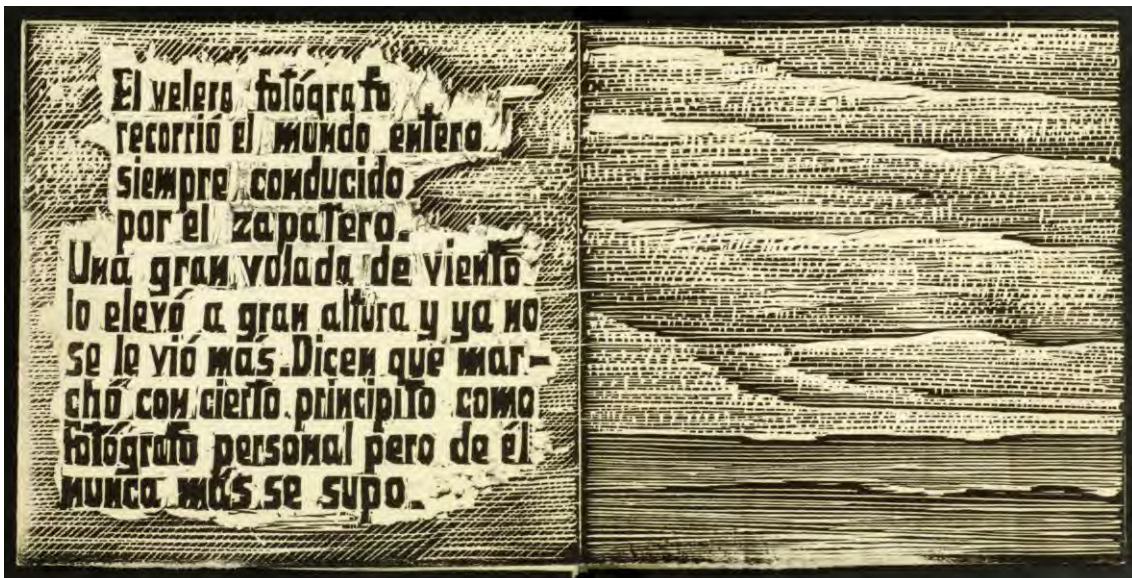 El velero fotógrafo
recorrió el mundo entero
siempre conducido
por el zapatero.
Una gran volada de viento
lo elevó a gran altura y ya no
se le vió más. Dicen que mar-
chó con cierto principito como
fotógrafo personal pero de él
nunca más se supo.